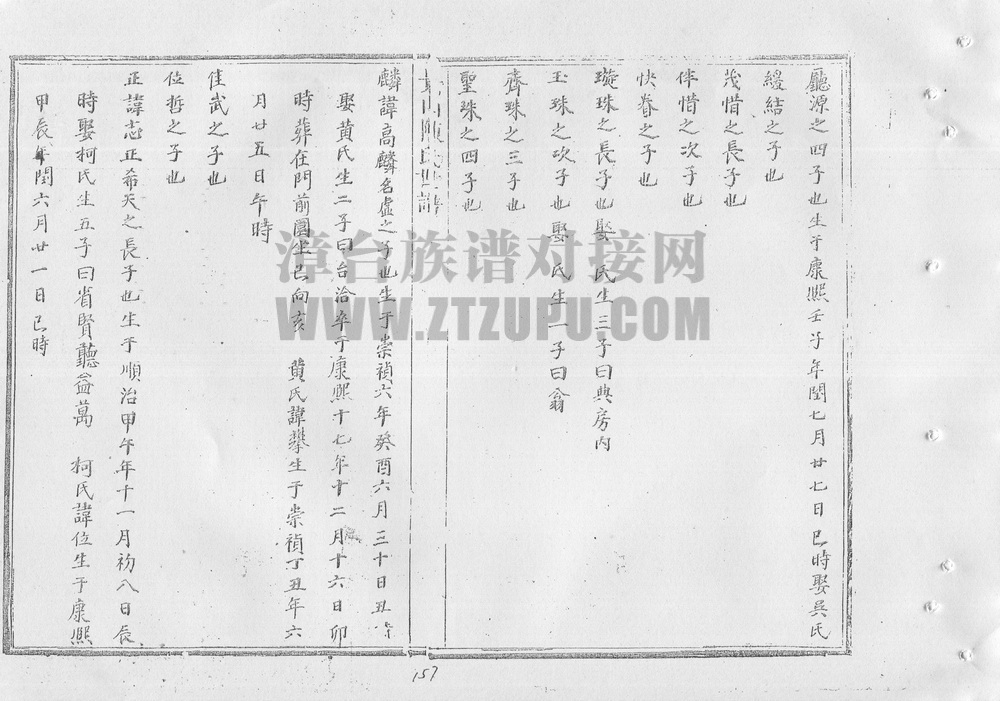 廳源之四子也生于康熙壬子年閏七月廿七日巳時娶吳氏
緩結之子也
茂惜之長子也
伴惜之次子也
快眷之子也
璇珠之長子也娶 氏生三子曰典房內
玉珠之次子也娶 氏生一子曰翁
齊珠之三子也
聖珠之四子也
山陳氏世譜
麟諱高麟名虛之子也生于崇禎六年癸酉六月三十日丑時
娶黃氏生二子曰台治卒于康熙十七年十二月十六日卯
時葬在門前園坐巳向亥 黃氏諱攀生于崇禎丁丑年六
月廿五日午時
佳武之子也
位哲之子也
正諱志正希天之長子也生于順治甲午年十一月初八日辰
時娶柯氏生五子曰省賢聽益萬 柯氏諱位生于康熙
甲辰年閏六月廿一日巳時
漳台族谱对接网
WWW.ZTZUPU.COM
157